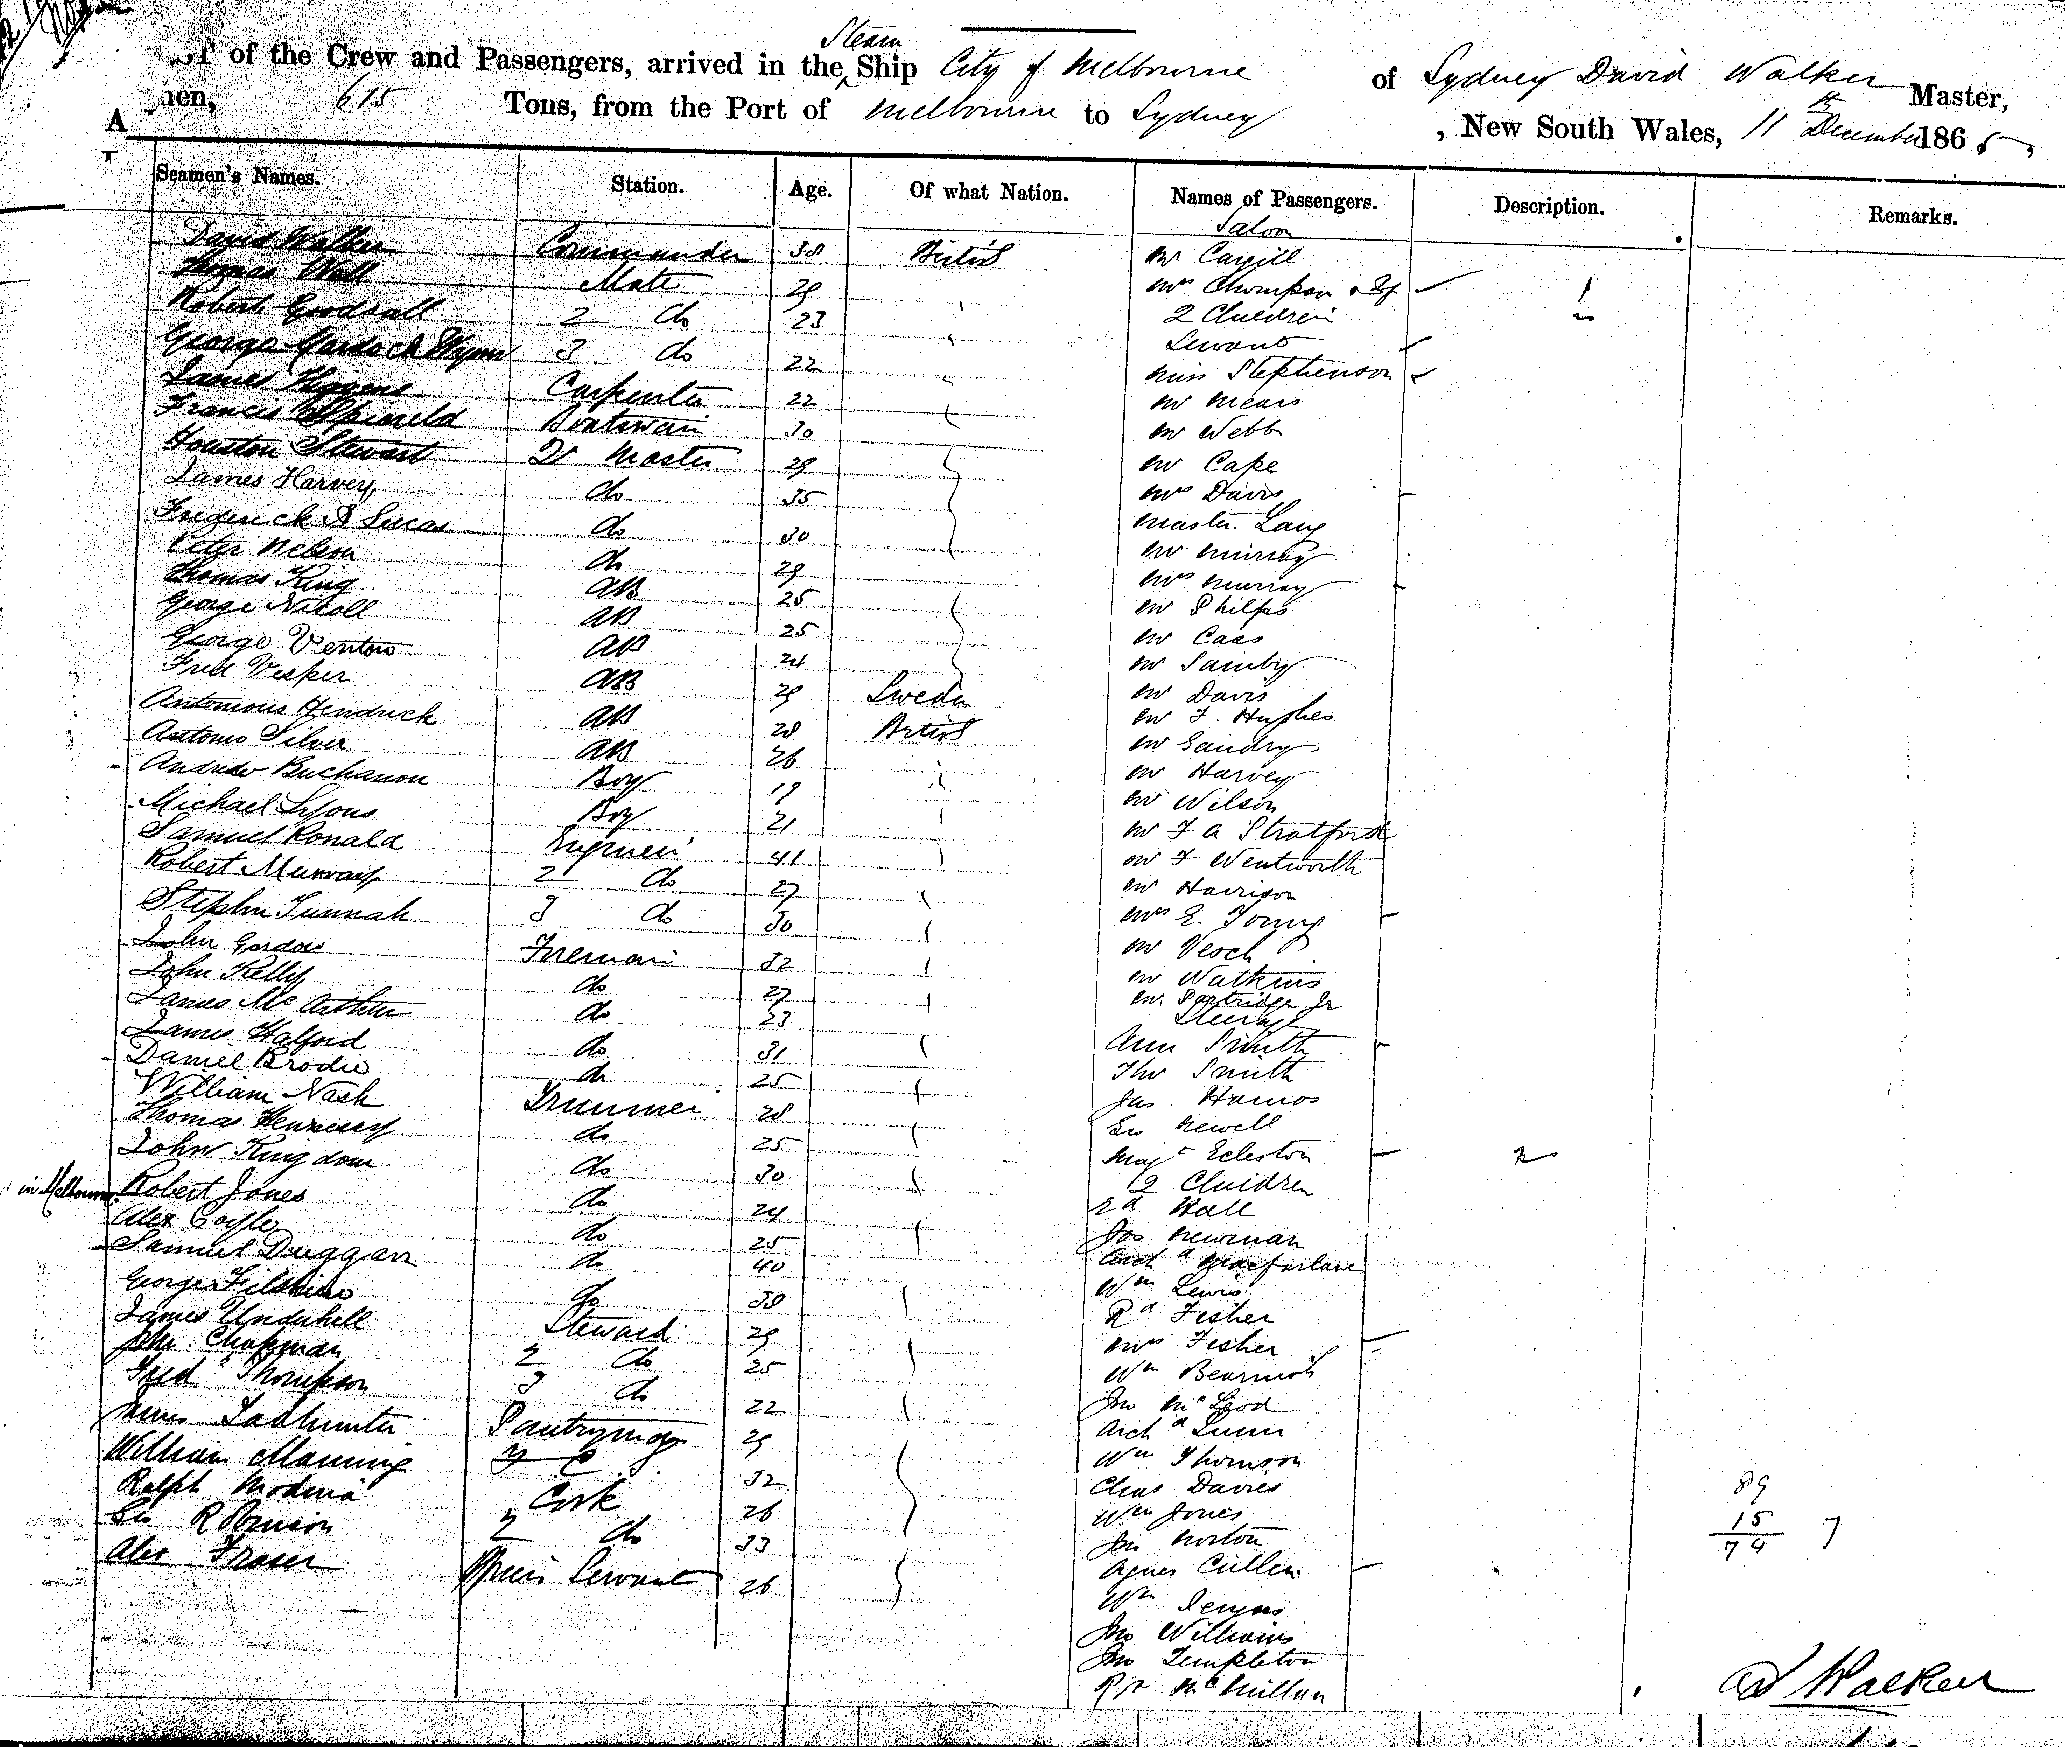 of the Crew and Passengers, arrived in the Steam Ship City of Melbourne of Sydney David Walker Master,
615 Tons, from the Port of Melbourne to Sydney, New South Wales, 11th December 1865
Seamen's Names. Station. Age. Of what Nation. Names of Passengers. Description. Remarks.
Saloon
David Walker Commander 38 British Mr Cargill
Thomas Wall Mate 29 Mrs Thompson
Robert Goodsall 2 do 23 2 Children
George 3 do 22 Servant
James Higgens Carpenter 22 Miss Stephenson
Francis Boatswain 30 Mr Mears
Houston Stewart Qr Master 29 Mr Webb
James Harvey do 35 Mr Cape
Frederick Lucas do 30 Mrs Davis
Peter Nelson do 29 Master Lang
Thomas King AB 25 Mr Murray
George Nicoll AB 25 Mrs Murray
George Venton AB 24 Mr Philps
Fred Vesper AB 29 Sweden Mr Cass
Antonious Hendrick AB 28 British Mr
Antonio Silver AB 26 Mr Davis
Andrew Buchanon Boy 19 Mr F. Hughes
Michael Lyons Boy 21 Mr Sandry
Samuel Ronald Engineer 41 Mr Harvey
Robert Murray 2 do 27 Mr Wilson
Stephen Tunnah 3 do 30 Mr F A Stratford
John Gordon Fireman 32 Mr F Wentworth
John Kelly do 27 Mr Harrison
James McArthur do 23 Mrs E. Young
James Halford do 31 Mr Veoch
Daniel Brodie do 25 Mr Watkins
William Nash Trimmer 28 Mr Partridge Jr
Steerage
Thomas Hennessy do 25 Ann Smith
John Kingdom do 30 Tho Smith
in Melbourne Robert Jones do 24 Jas Hamos
Alex Coyle do 25 Geo Newell
Samuel Duggan do 40 Magt Ecleston 2
George do 38 2 Children
James Underhill Steward 29 Rd Hall
John Chapman 2 do 25 Jas Newman
Fred Thompson 3 do 22 Archd Macfarlane
Tadhunter Pantryman 29 Wm Lewis
William Manning 32 Rd Fisher
Ralph Modina Cook 26 Mrs Fisher
Geo Robinson 2 do 33 Wm
Alex Fraser Servant 26 Jno McLeod
Archd Lunn
Wm Thomson
Chas Davies 89
Wm Jones 15
Jno Norton 74 7
Agnes Cullen
Wm
Jno Williams
Jno Templeton
McMillan
D Walker